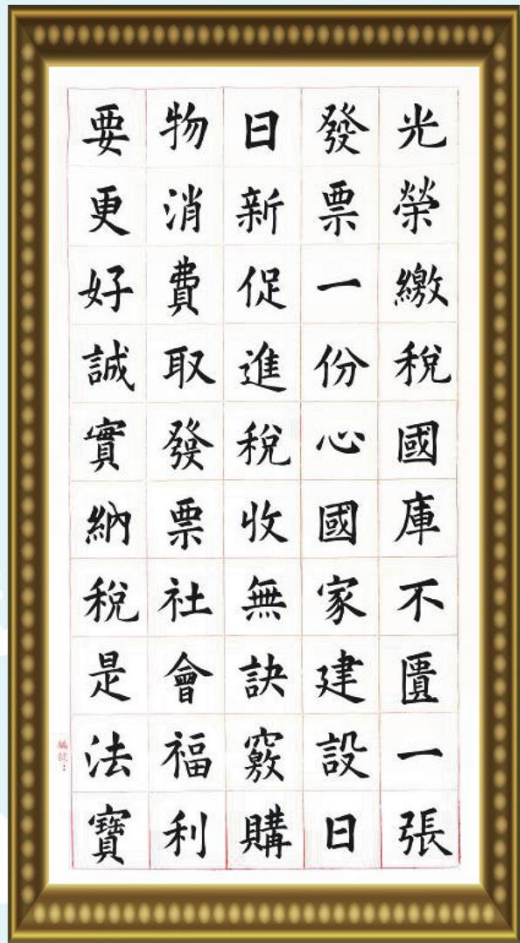 光榮繳稅國庫不匱一張
發票一份心國家建設日
日新促進稅收無訣竅購
物消費取發票社會福利
要更好誠實納稅是法寶
編號：